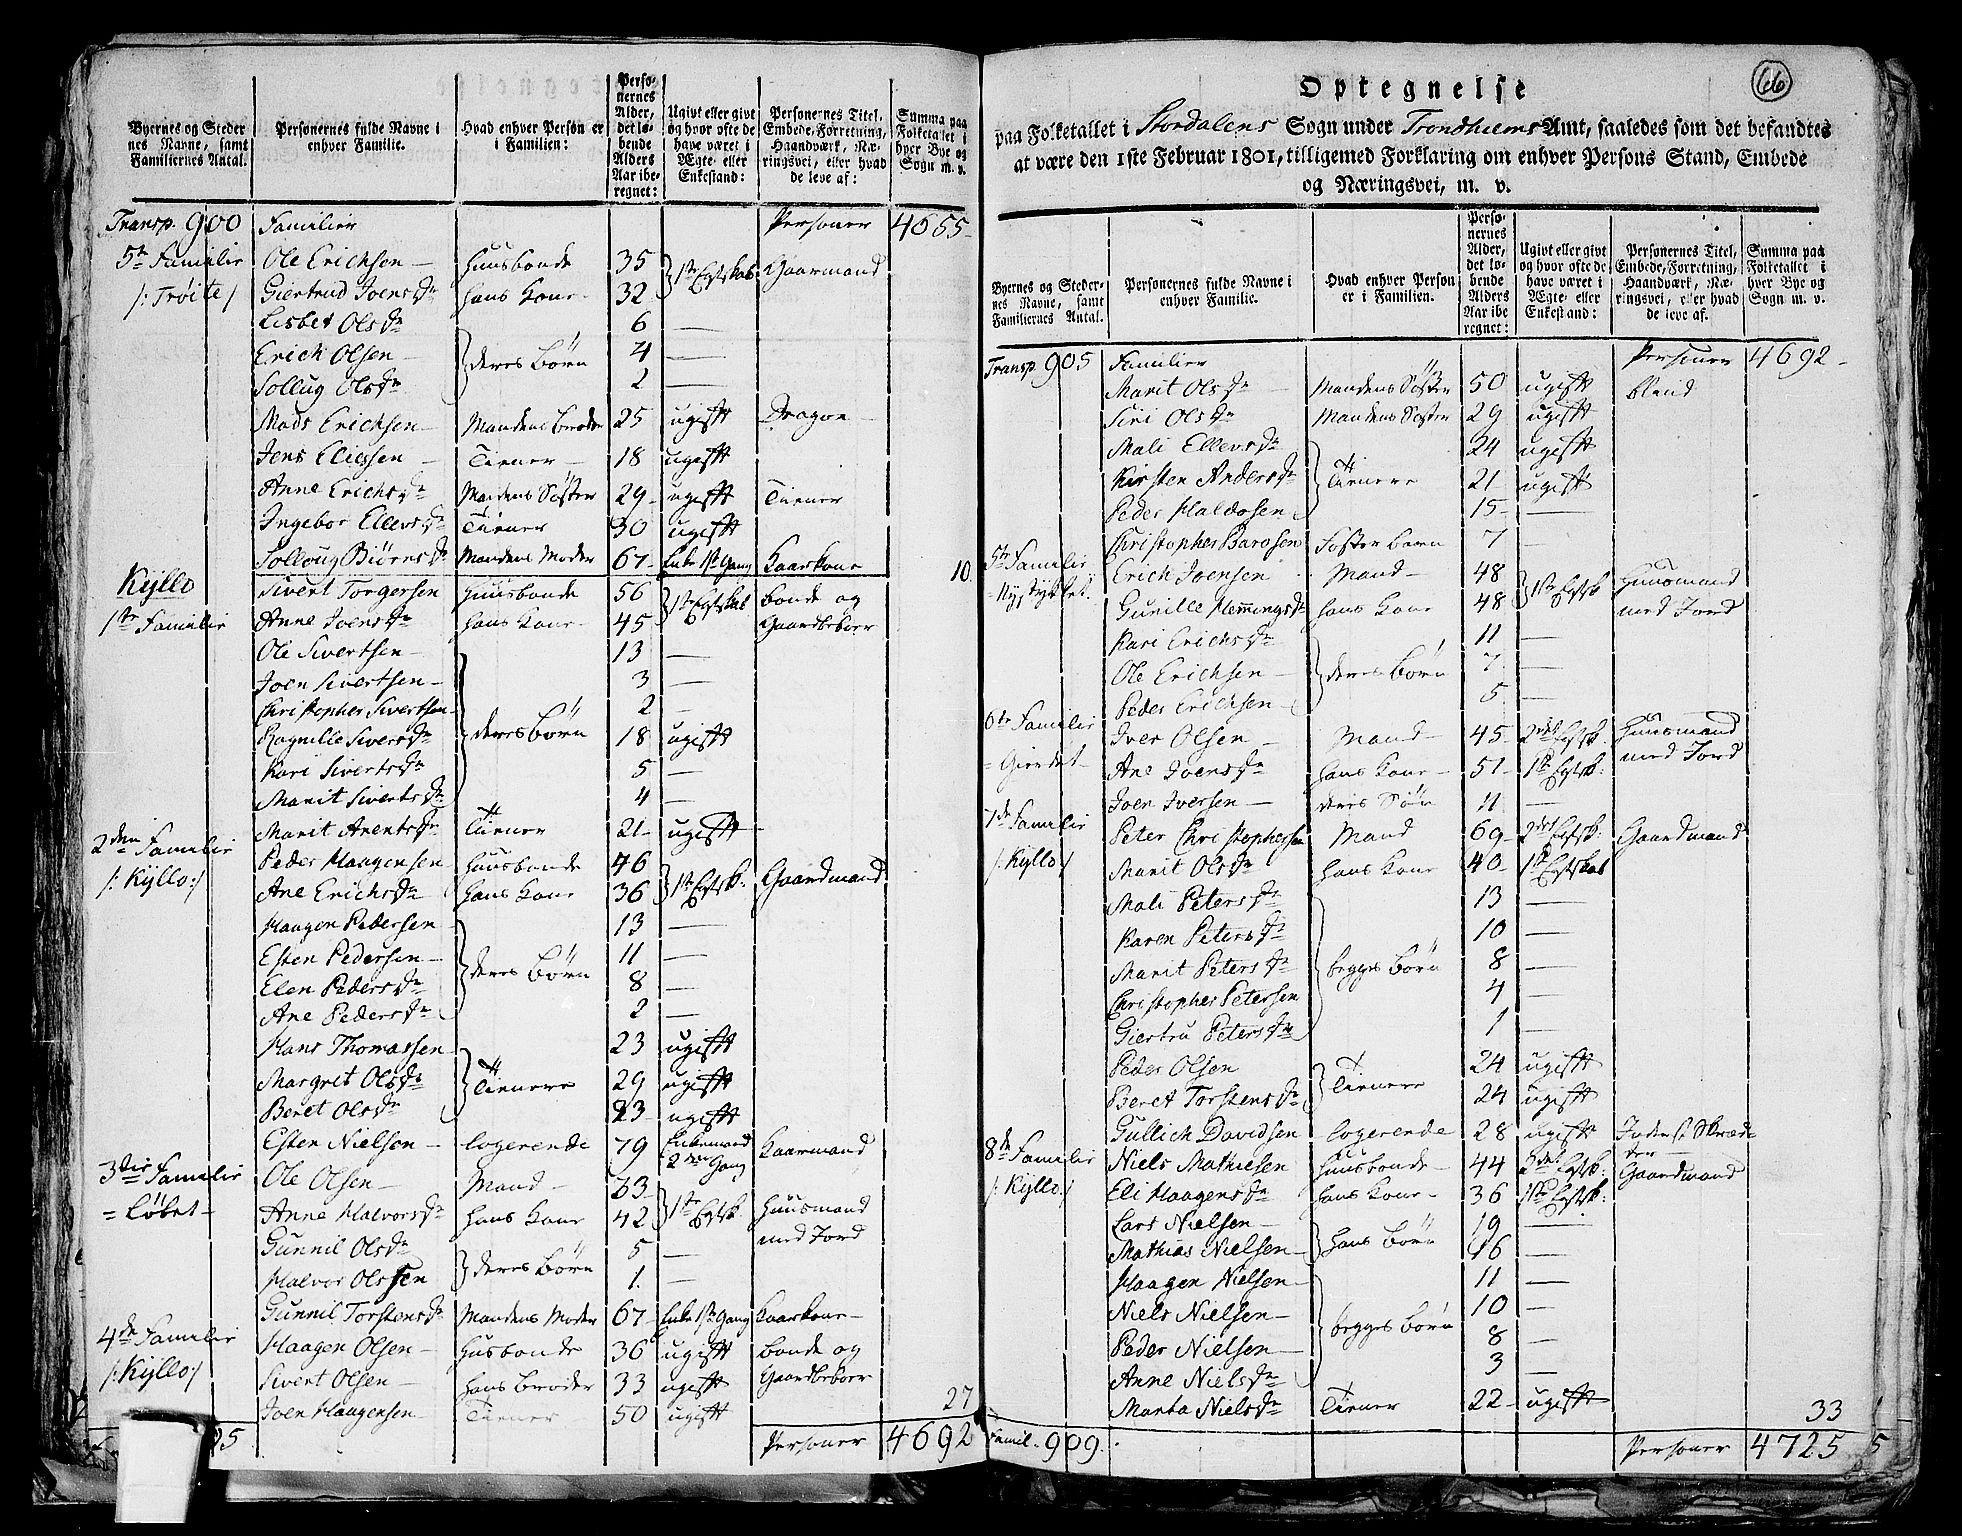 Byernes og Steder
nes Navne, samt
Familiernes Antal.
Personernes fulde Navne i
enhver Familie.
Hvad enhver Person er
i Familien:
Perso-
nernes
Alder,
det lø-
bende
Alders
Aar ibe-
regnet:
Ugivt eller givt
og hvor ofte de
have været i
Ægte- eller
Enkestand:
Personernes Titel,
Embede, Forretning,
Haandværk, Næ-
ringsvei, eller hvad
de leve af:
Summa paa
Folketallet i
hver Bye og
Sogn m. v.
Transp. 900 Familier Personer 4655
5te Familie Ole Erichsen Huusbonde 35 1ste Egtskab Gaarmand
/: Trøite / Giertrud Joensdr hans Kone 32
Lisbet Olsdr 6 —
Erich Olsen deres Børn 4 —
Sollug Olsdr 2 —
Mads Erichsen Mandens Broder 25 ugift Dragon
Jens Eliessen Tiener 18 ugift
Anne Erichsdr Mandens Søster 29 ugift Tiener
Ingebor Ellevsdr Tiener 30 ugift
Solloug Biørnsdr Mandens Moder 67 Enke 1ste Gang Kaarkone
Kyllo Sivert Torgersen Huusbonde 56 1ste Egtskab bonde og
1ste Familie Anne Joensdr hans Kone 45 Gaardbeboer
Ole Sivertsen 13 —
Joen Sivertsen 3 —
Christopher Sivertsen 2 —
Ragnille Siversdr deres Børn 18 ugift
Kari Sivertsdr 5 —
Marit Sivertsdr 4 —
Marit Arentsdr Tiener 21 ugift
2den Familie Peder Haagensen Huusbonde 46 1ste Egtsk: Gaardmand
/: Kyllo :/ Ane Erichsdr hans Kone 36
Haagen Pedersen 13 —
Esten Pedersen deres Børn 11 —
Elen Pedersdr 8 —
Ane Pedersdr 2 —
Hans Thomassen 23 ugift
Margret Olsdr Tienere 29 ugift
Beret Olsdr 23 ugift
Esten Nielsen logerende 79 Enkemand 2den Gang Kaarmand
3die Familie Ole Olsen Mand 33 1ste Egtsk Huusmand
= Løbet Anne Halvorsdr hans Kone 42 med Jord
Gunnil Olsdr deres Børn 5 —
Halvor Olsen 1 —
Gunnil Torstensdr Mandens Moder 67 Enke 1ste Gang Kaarkone
4de Familie Haagen Olsen Husbonde 36 ugift bonde og
/: Kyllo :/ Sivert Olsen hans Broder 33 ugift Gaardbeboer
Joen Haagensen Tiener 50 ugift 27
Personer 4692
66
Optegnelse
paa Folketallet i Stordalens Sogn under Trondhiems Amt, saaledes som det befandtes
at være den 1ste Februar 1801, tilligemed Forklaring om enhver Persons Stand, Embede
og Næringsvei, m. v.
Byernes og Steder-
nes Navne, samt
Familiernes Antal.
Personernes fulde Navne i
enhver Familie.
Hvad enhver Person
er i Familien.
Perso-
nernes
Alder,
det lø-
bende
Alders
Aar ibe
regnet:
Ugivt eller givt
og hvor ofte de
have været i
Ægte- eller
Enkestand:
Personernes Titel,
Embede, Forretning,
Haandværk, Næ-
ringsvei, eller hvad
de leve af.
Summa paa
Folketallet i
hver Bye og
Sogn m. v.
Transp 905 Familier Personer 4692
Marit Olsdr Mandens Søster 50 ugift blind
Siri Olsdr Mandens Søster 29 ugift
Mali Ellevsdr 24 ugift
Kirsten Andersdr Tienere 21 ugift
Peder Haldosen 15 —
Christopher Barosen Foster barn 7 —
10. 5te Familie Erich Joensen Mand 48 1ste Egtsk Huusmand
= Nystykket. Gunille Hemmingsdr hans Kone 48 med Jord
Kari Erichsdr 11 —
Ole Erichsen deres Børn 7 —
Peder Erichsen 5 —
6te Familie Iver Olsen Mand 45 2det Egtsk. Huusmand
= Gierdet Ane Joensdr hans Kone 51 1ste Egtsk: med Jord
Joen Iversen deres Søn 11 —
7de Familie Peter Christophersen Mand 69 2det Egtsk: Gaardmand
/: Kyllo :/ Marit Olsdr hans Kone 40 1ste Egtskab
Mali Petersdr 13 —
Karen Petersdr 10 —
Marit Petersdr begges Børn 8 —
Christopher Petersen 4 —
Giertru Petersdr 1 —
Peder Olsen Tienere 24 ugift
Beret Torstensdr 24 ugift
Gullich Davidsen logerende 28 ugift Inderst Skræd-
der
8de Familie Niels Mathiesen Huusbonde 44 2det Egtsk: Gaardmand
/: Kyllo :/ Eli Haagensdr hans Kone 36 1ste Egtsk:
Lars Nielsen hans Børn 19 —
Mathias Nielsen 16 —
Haagen Nielsen 11 —
Niels Nielsen begges Børn 10 —
Peder Nielsen 8 —
Anne Nielsdr 3 —
Marta Nielsdr Tiener 22 ugift 33
Famil. 909. Personer 4725